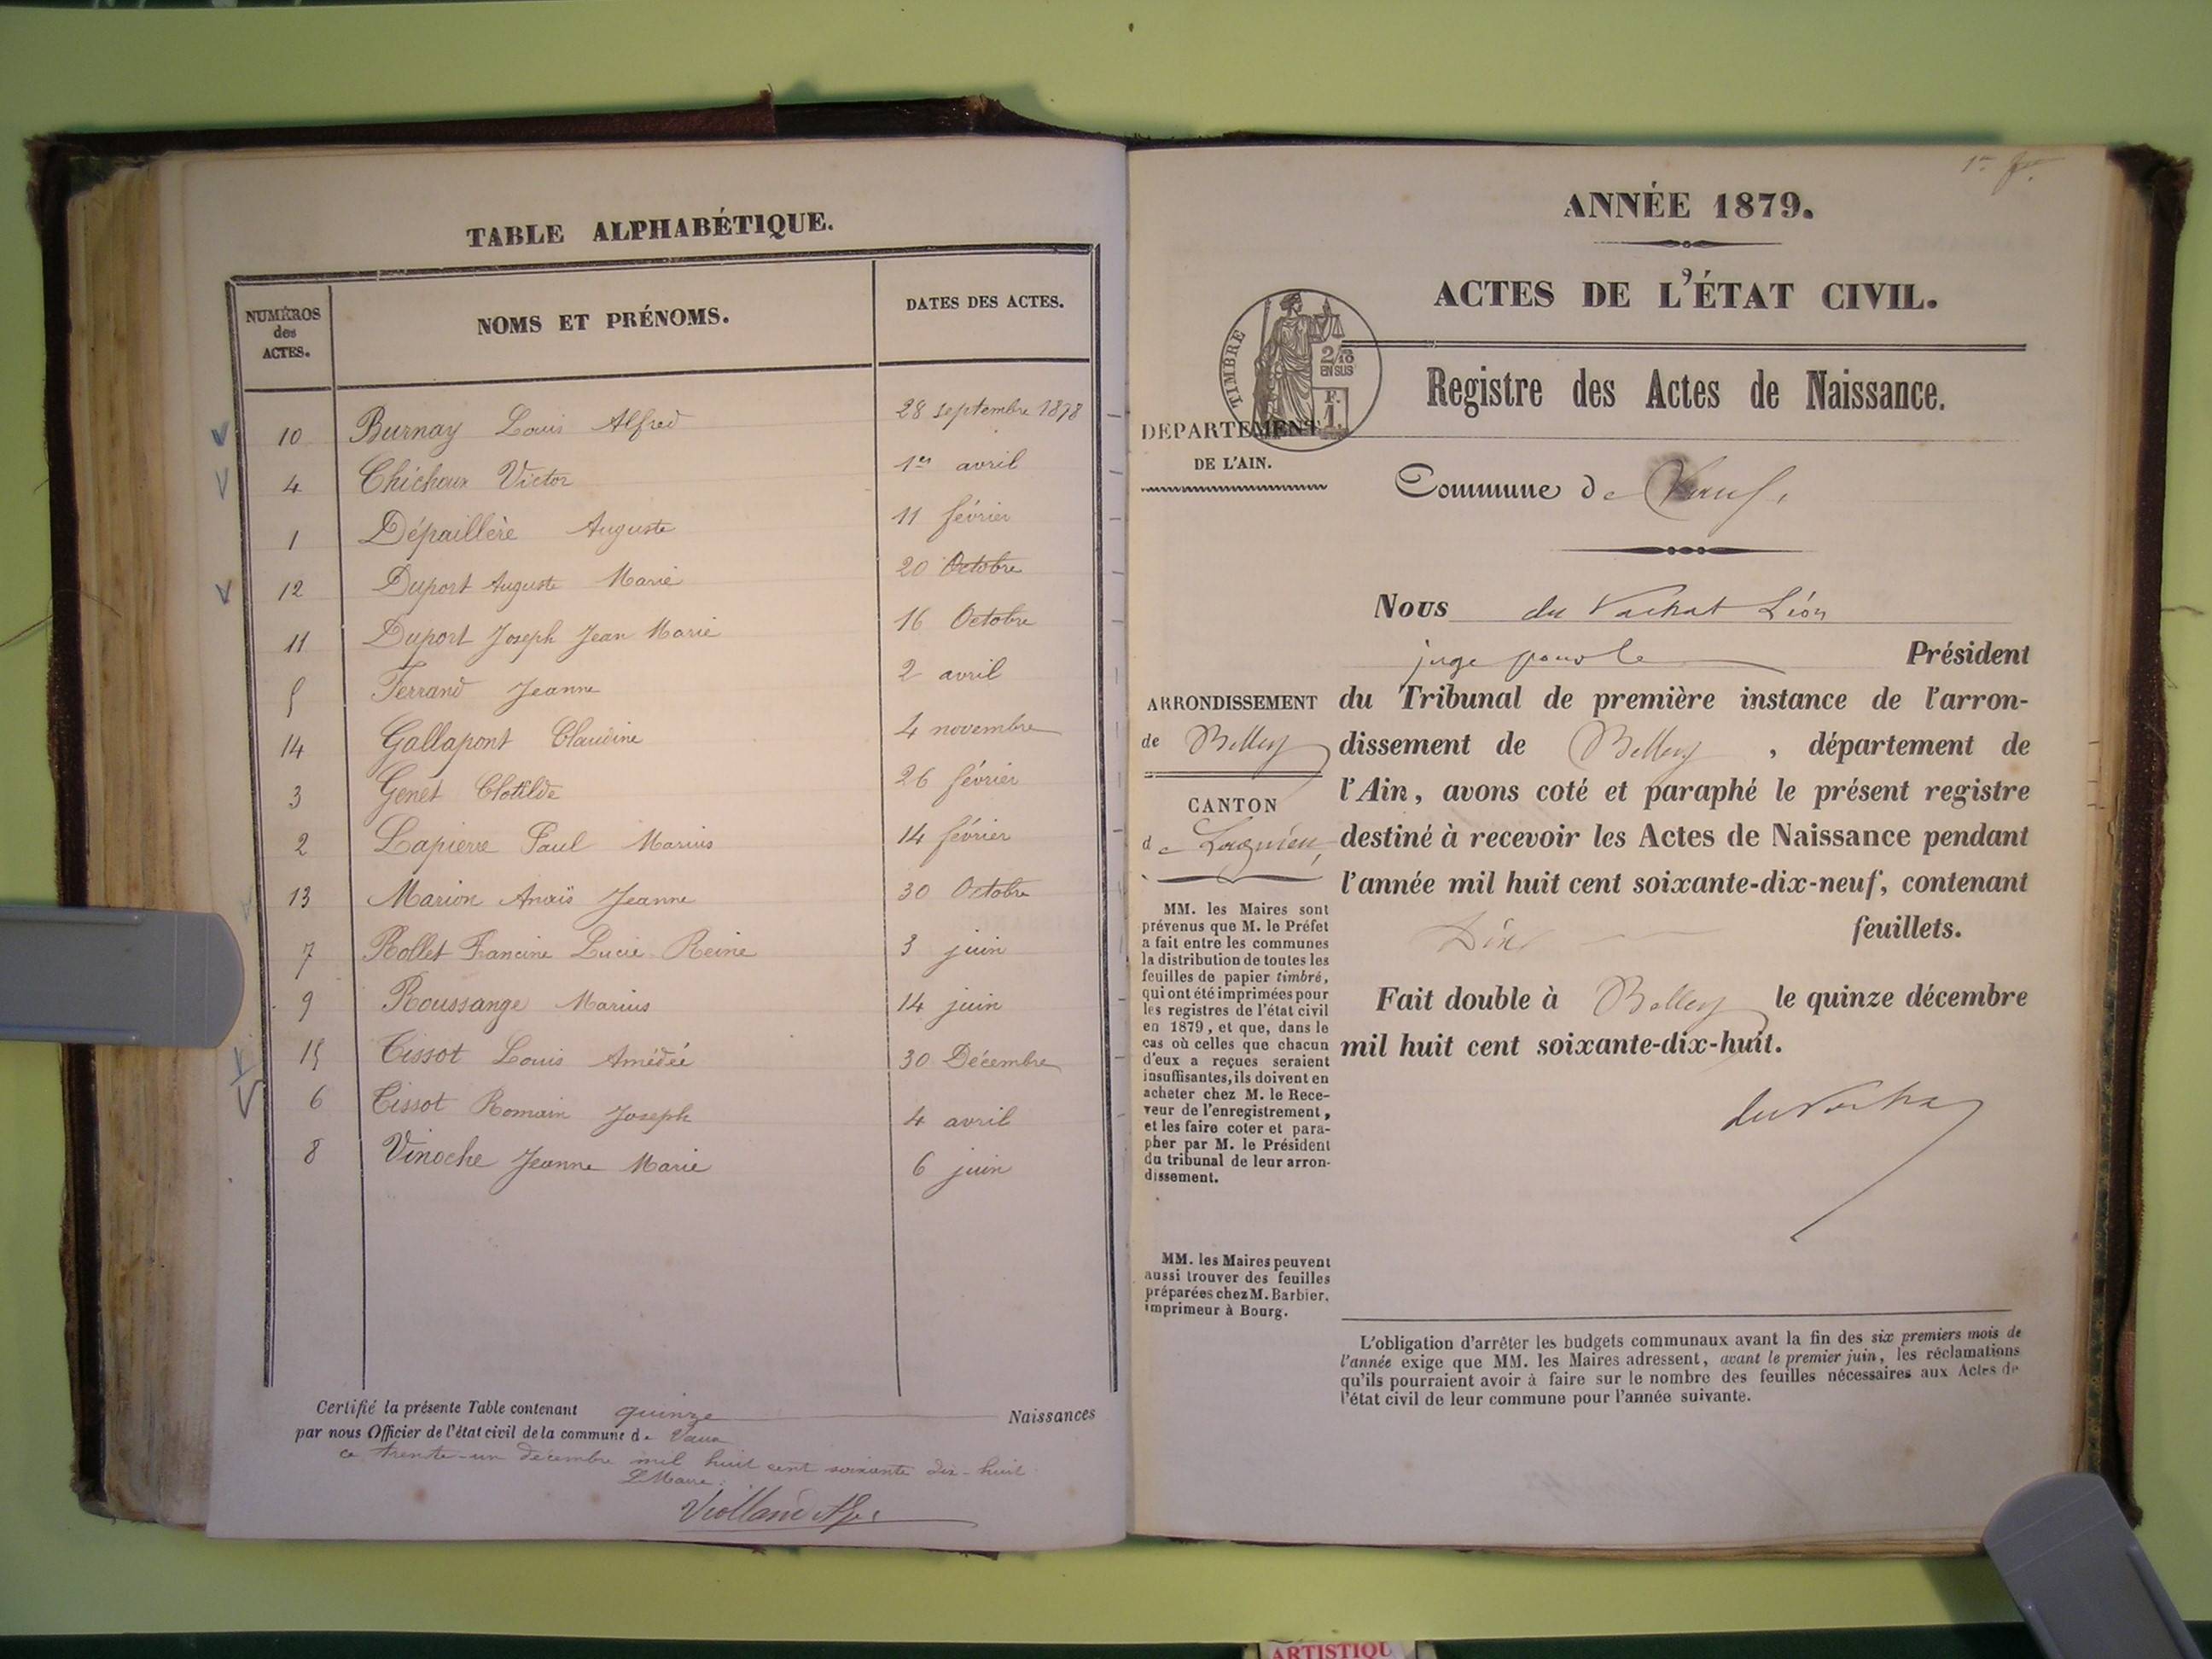 TABLE ALPHABÉTIQUE.
NUMÉROS des ACTES. NOMS ET PRÉNOMS. DATES DES ACTES.
10 Burnay Louis Alfred 28 septembre 1878
4 Chichoux Victor 1er avril
1 Dépaillère Auguste 11 février
12 Duport Auguste Marie 20 Octobre
11 Duport Joseph Jean Marie 16 Octobre
5 Ferrand Jeanne 2 avril
14 Gallapont Claudine 4 novembre
3 Genet Clotilde 26 février
2 Lapierre Paul Marius 14 février
13 Marion Anaïs Jeanne 30 Octobre
7 Rollet Francine Lucie Reine 3 juin
9 Roussange Marius 14 juin
15 Tissot Louis Amédée 30 Décembre
6 Tissot Romain Joseph 4 avril
8 Vinoche Jeanne Marie 6 juin
Certifié la présente Table contenant quinze Naissances
par nous Officier de l'état civil de la commune de Vaux
ce trente-un décembre mil huit cent soixante dix-huit
Le Maire:
ANNÉE 1879.
ACTES DE L'ÉTAT CIVIL.
TIMBRE
2/10
EN SUS
F.
1.
Registre des Actes de Naissance.
DÉPARTEMENT
DE L'AIN.
Commune de Vaux,
Nous du Vachat Léon
juge pour le Président
ARRONDISSEMENT
de Belley
CANTON
de Lagnieu,
du Tribunal de première instance de l'arron-
dissement de Belley, département de
l'Ain, avons coté et paraphé le présent registre
destiné à recevoir les Actes de Naissance pendant
l'année mil huit cent soixante-dix-neuf, contenant
Dix feuillets.
Fait double à Belley le quinze décembre
mil huit cent soixante-dix-huit.
du Vachat
MM. les Maires sont
prévenus que M. le Préfet
a fait entre les communes
la distribution de toutes les
feuilles de papier timbré,
qui ont été imprimées pour
les registres de l'état civil
en 1879, et que, dans le
cas où celles que chacun
d'eux a reçues seraient
insuffisantes, ils doivent en
acheter chez M. le Rece-
veur de l'enregistrement,
et les faire coter et para-
pher par M. le Président
du tribunal de leur arron-
dissement.
MM. les Maires peuvent
aussi trouver des feuilles
préparées chez M. Barbier,
imprimeur à Bourg.
L'obligation d'arrêter les budgets communaux avant la fin des six premiers mois de
l'année exige que MM. les Maires adressent, avant le premier juin, les réclamations
qu'ils pourraient avoir à faire sur le nombre des feuilles nécessaires aux Actes de
l'état civil de leur commune pour l'année suivante.
ARTISTIQU